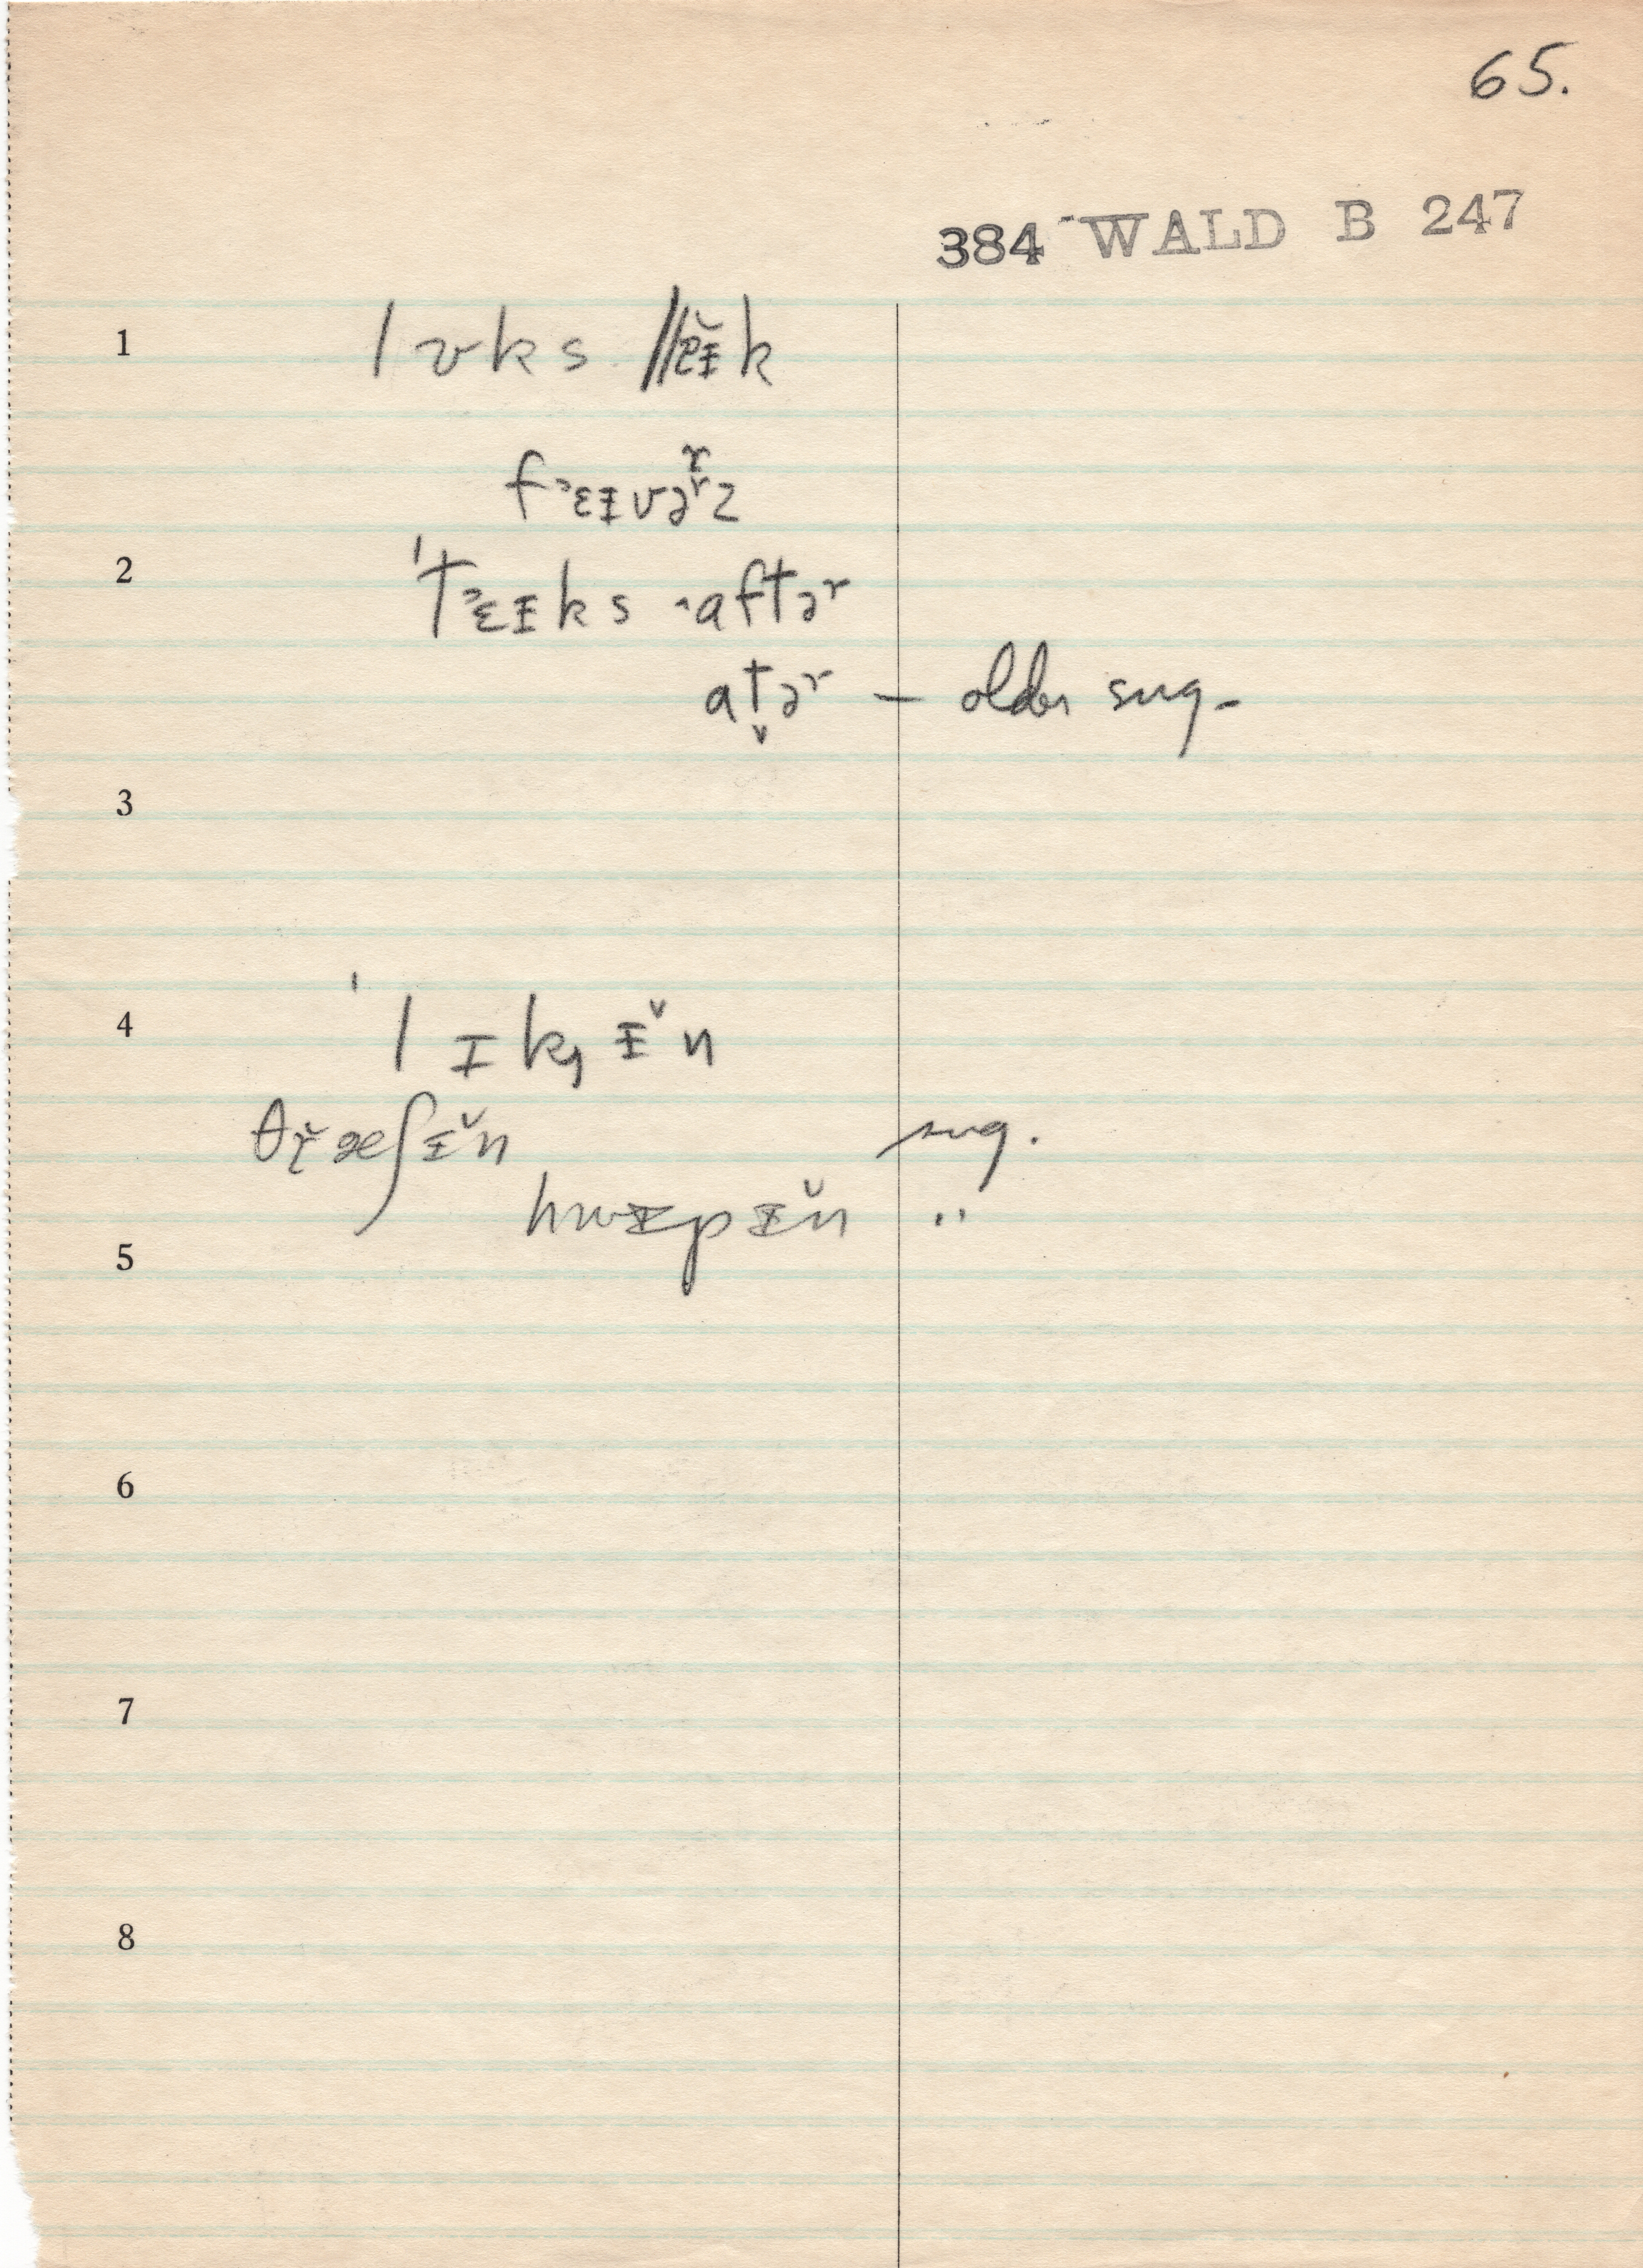 65.
384 WALD B 247
1 l ʊ k s l ɪ̆ k
f ᵋɛɪ v ə ʳ z
2 ˈt ᵋɛɪ k s ˑa f t ə ʳ
a t̬ ə ʳ – older sug.
3
4 ˈl ɪ k ɪ̆ n
θ r̆ æ ʃ ɪ̆ n sug.
h w ɪ p ɪ̆ n "
5
6
7
8